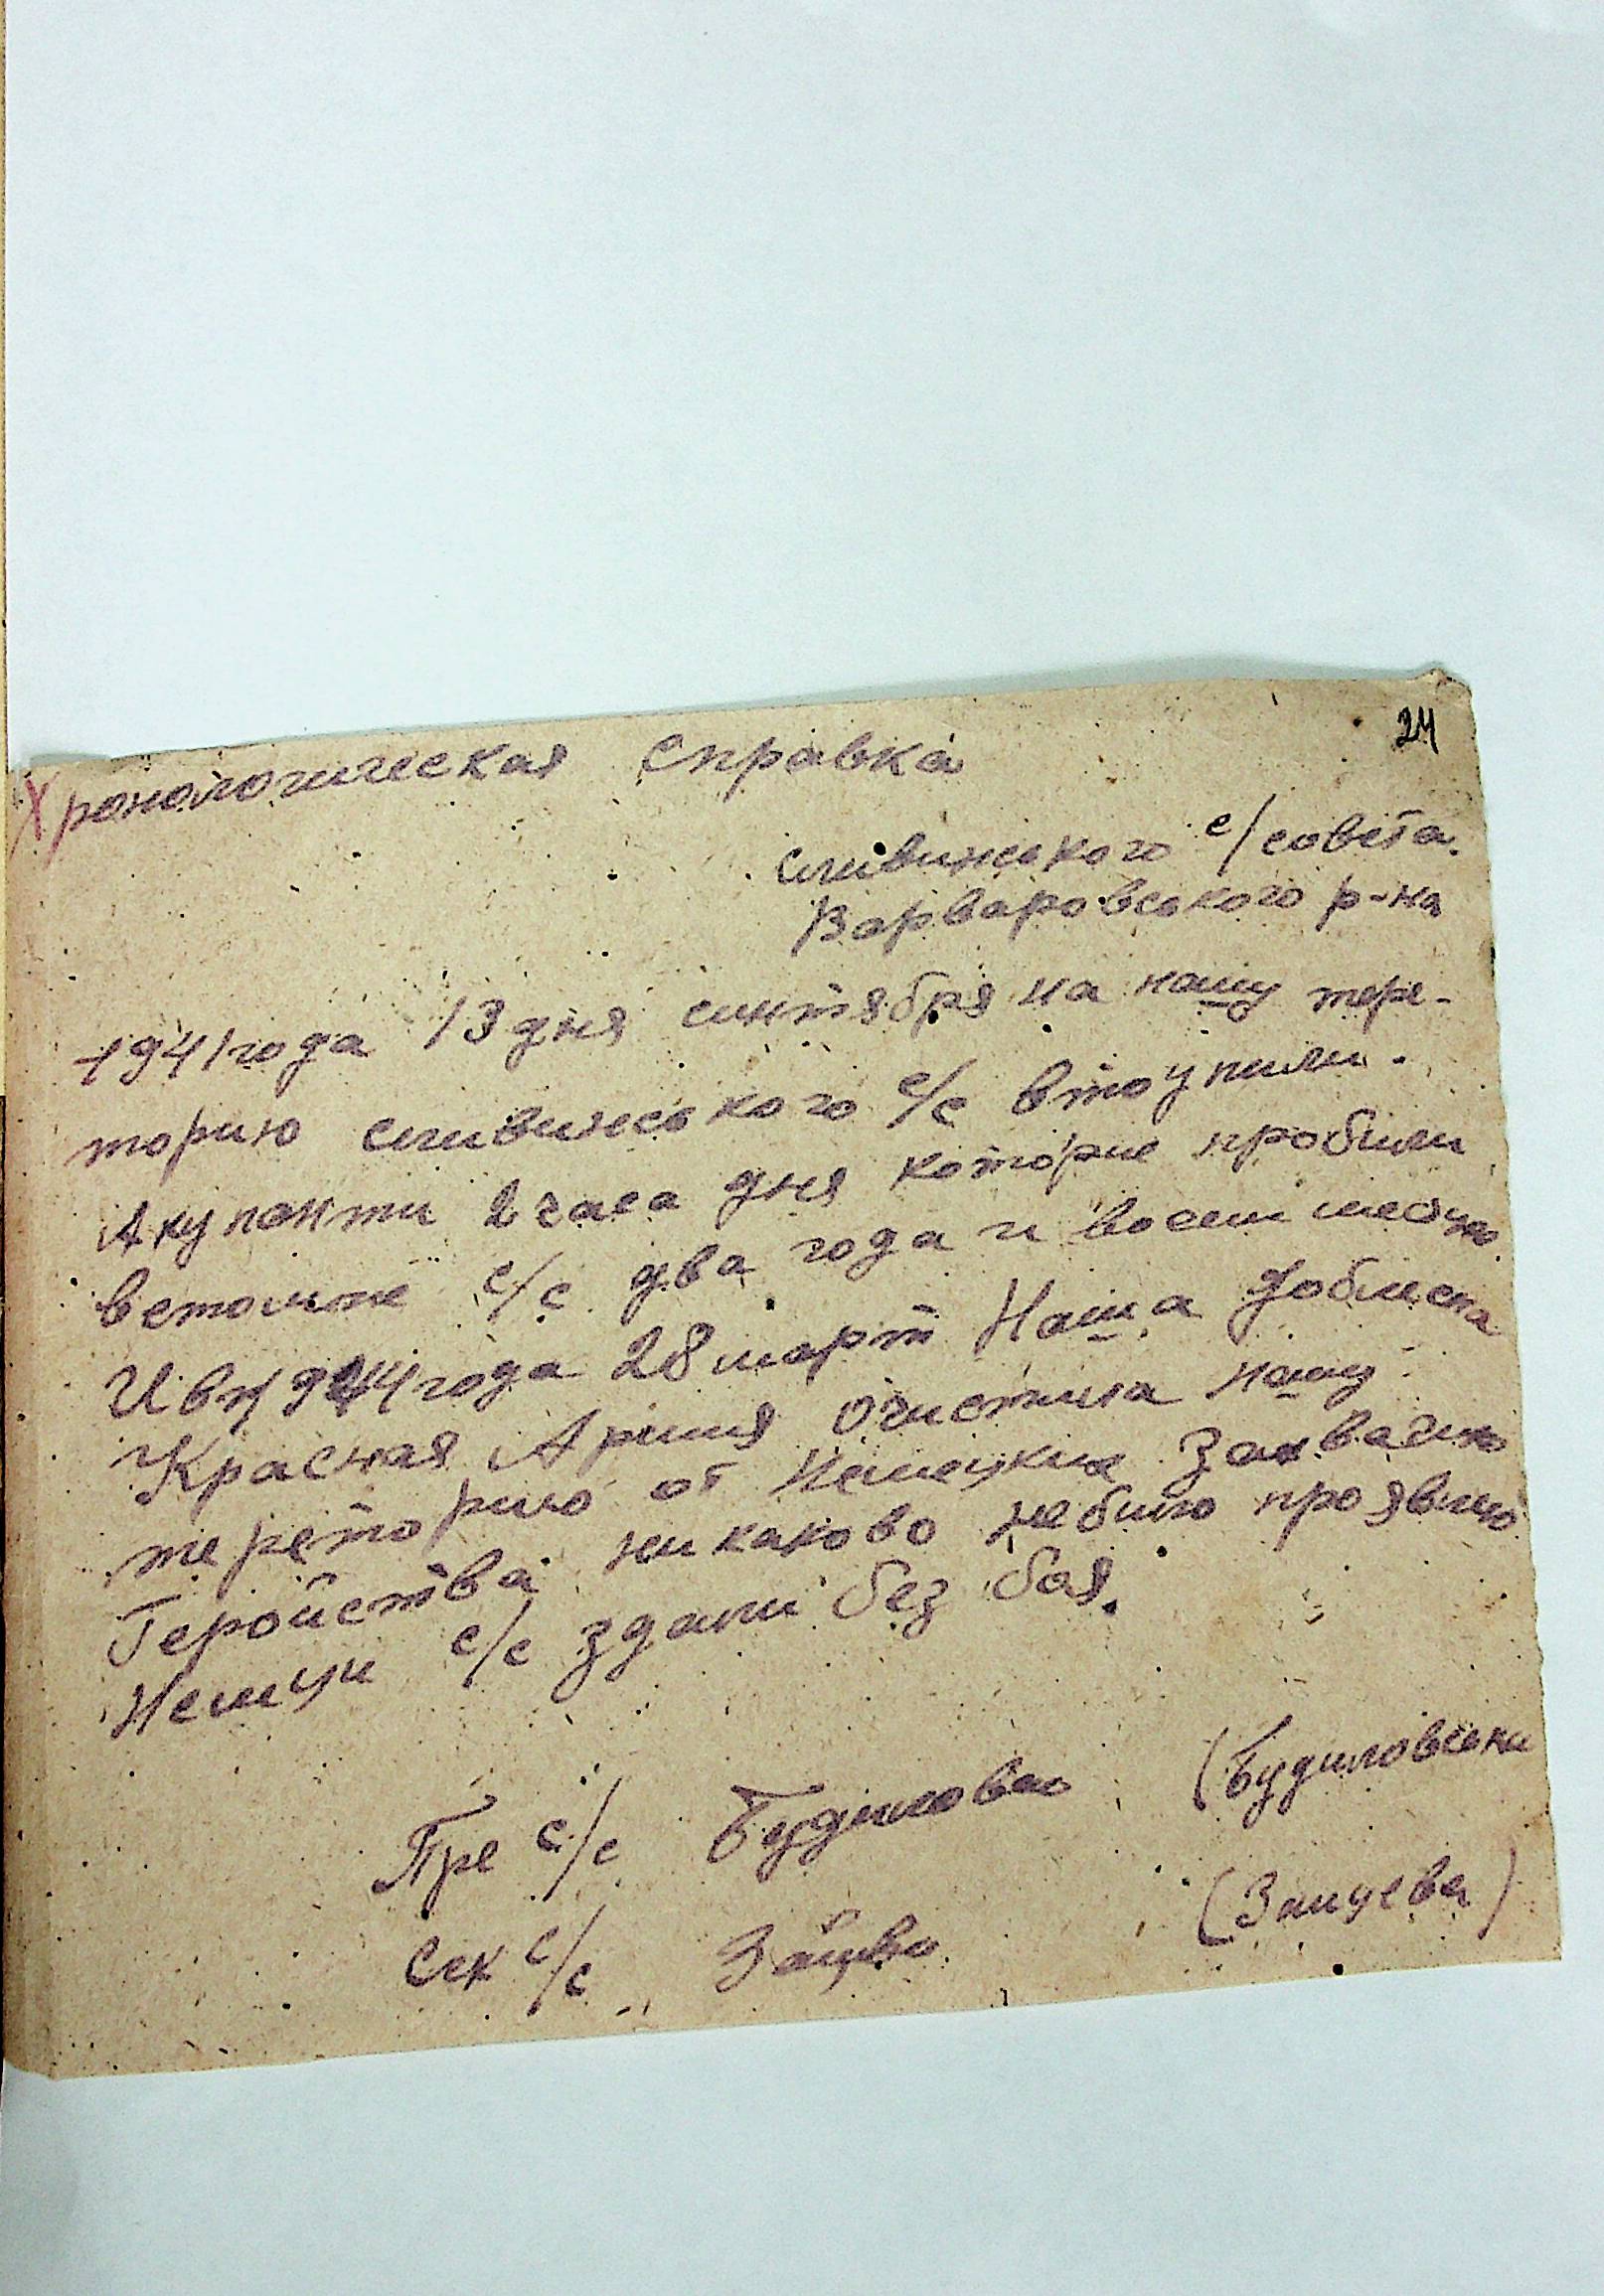 24
Хронологическая справка
сливинського с/совета.
Варваровського р-на
1941 года 13 дня синтября на нашу тере-
торию сливинського с/с втоупили.
Акупанти 2 часа дня которие пробили
встольне с/с два года и восем месяц
И в 1944 года 28 март Наша доблесна
Красная Армия очистила нашу
tереторию от Немецких захвачик
Геройства никаково небило проявлино
Немци с/с здали без боя.
Пре с/с Будиловсь (Будиловсски
Сек с/с Зайцева (Заицева)